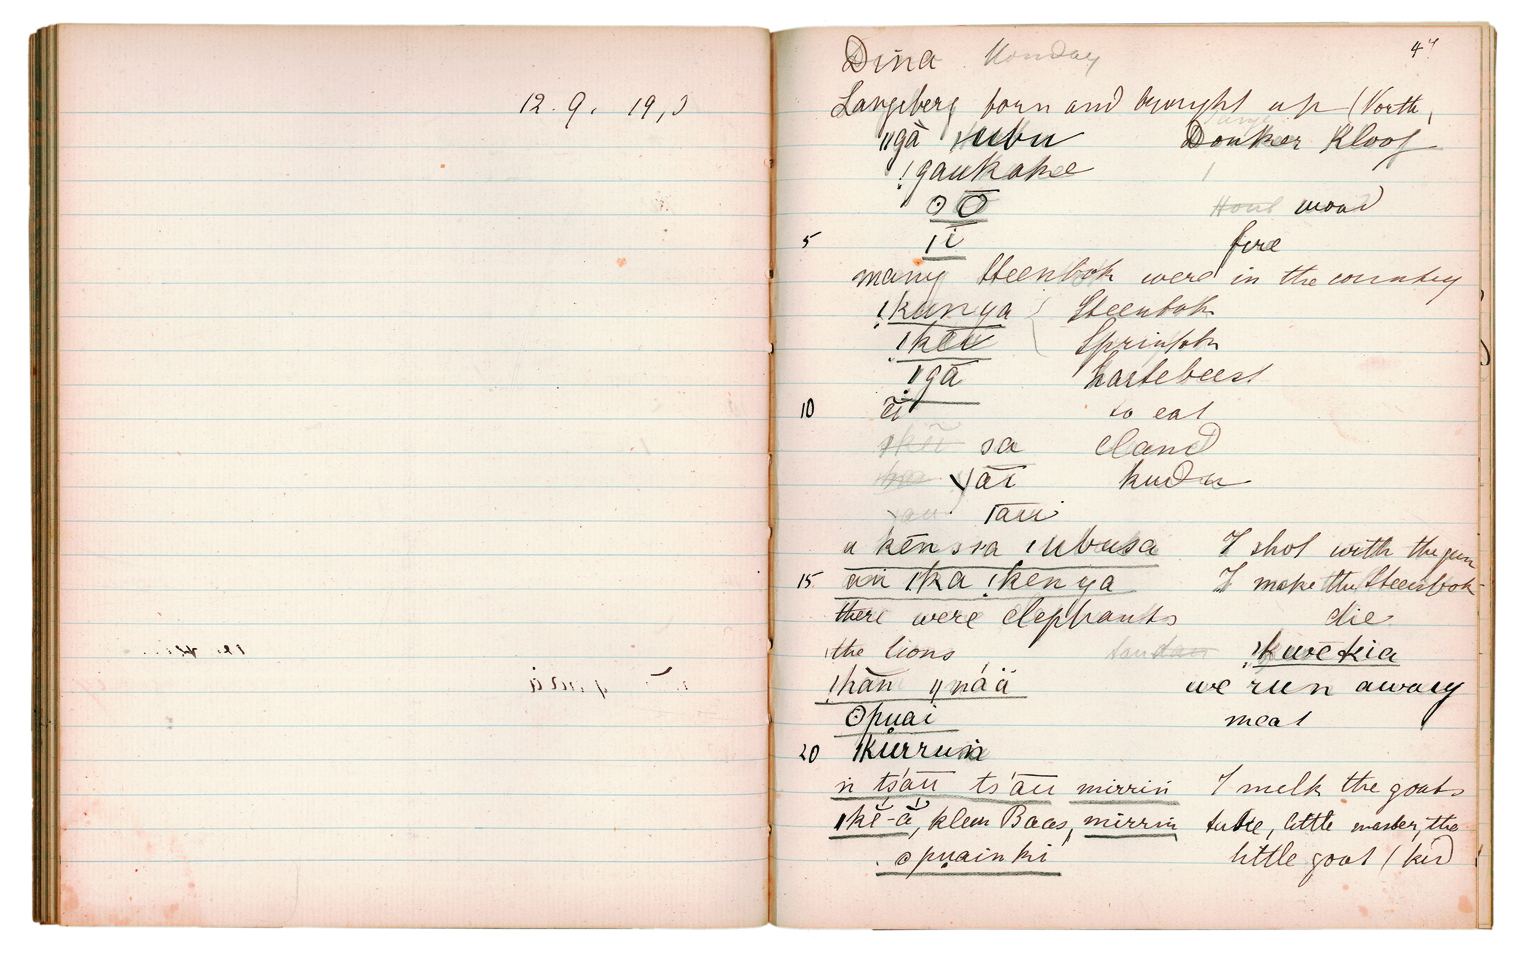 12. 9. 19,
Dina Monday 4
Langeberg born and brought up (North,
ǁgà ǀubu Donker Kloof
!gaukakee
ʘ Ō Hout wood
5 ǀi fire
many Steenbok were in the country
!kunya { Steenbok
Springbok
gā hartebeest
10 to eat
sa Eland
ǀāī kudu
ǀāūi
a kēnssa ǀubusa I shot with the gun
15 ǀka !kenya I make the Steenbok
there were elephants die
the lions !kwēkia
!hān ǁnáä we run away
ʘpuai meat
20 ǀkurruṅ
ṅ ts'āū ts'āū mirriṅ I melk the goats
ǀkĕ-ă, klein Baas, mirriṅ take, little master, the
ʘpuainki little goat (kid